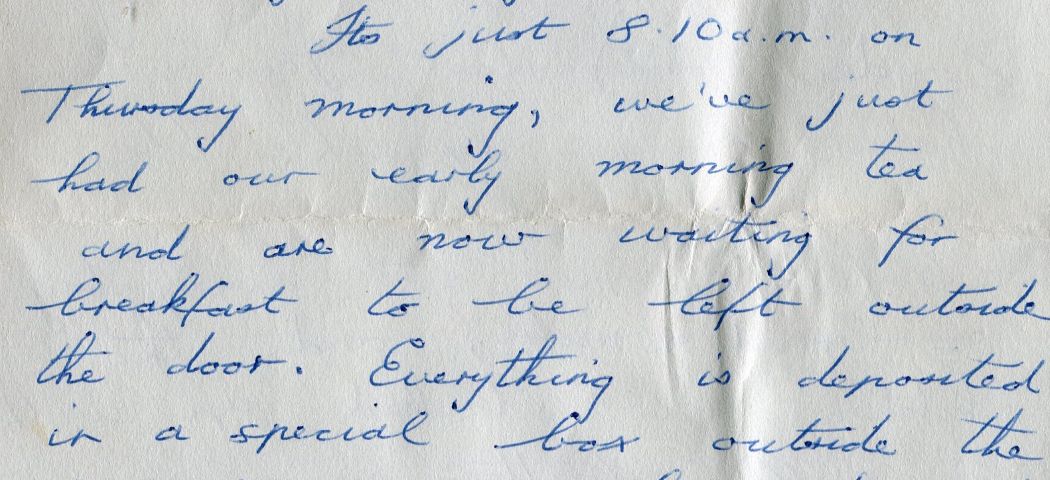 Its just 8.10a.m. on
Thursday morning, we've just
had our early morning tea
and are now waiting for
breakfast to be left outside
the door. Everything is deposited
in a special box outside the